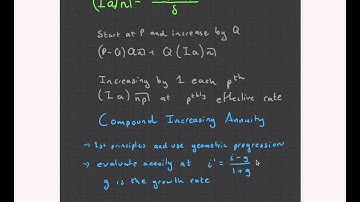 (Ia)n̅| =
δ
Start at P and increase by Q
(P-Q) an̅| + Q (Ia)n̅|
Increasing by 1 each pth
(Ia) n̅p̅| at pthly effective rate
Compound Increasing Annuity
→ 1st principles and use geometric progression
→ evaluate annuity at i' = i-g / 1+g
g is the growth rate